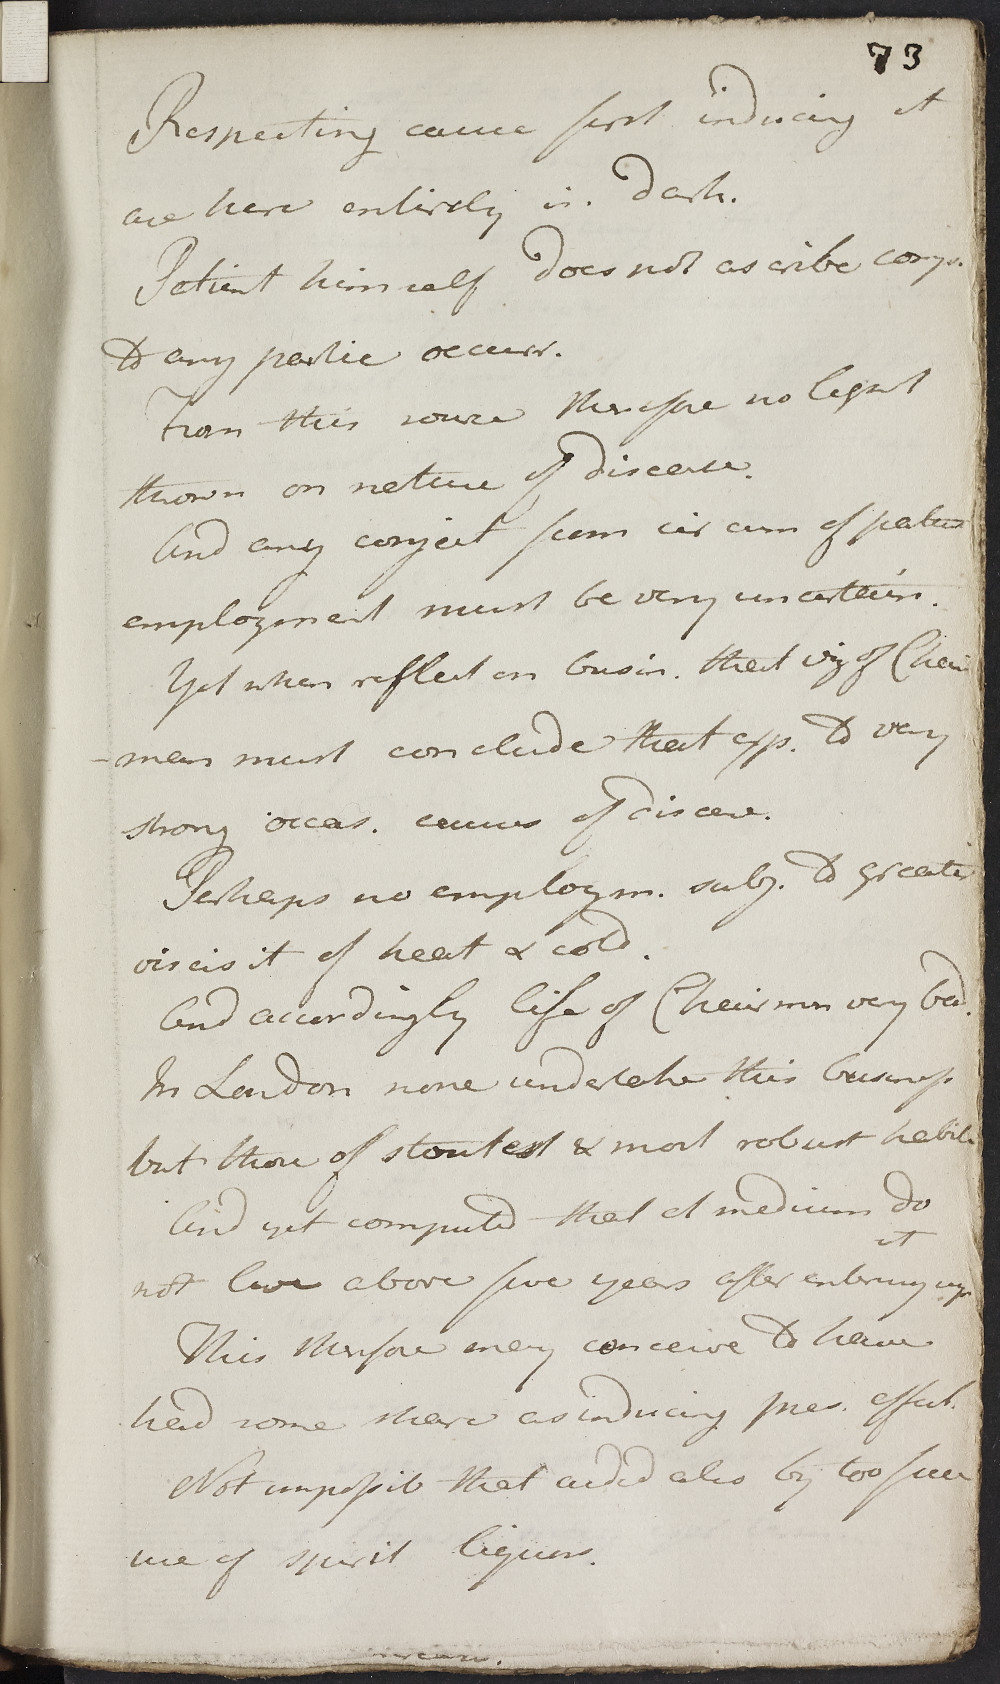 73
Respecting cause first inducing it
are here entirely in. dark.
Patient himself does not ascribe comp.
to any partic occurr.
From this source therefore no light
thrown on nature of disease.
And any conject from circum of patient
employment must be very uncertain.
Yet when reflect on busin. that viz of Chair
-man must conclude that exp. to very
strong occas. causes of disease.
Perhaps no employm. subj. to greater
vicisit of heat & cold.
And accordingly life of Chairmn very bad.
In London none undertake this business
but those of stoutest & most robust habits
And yet computed that at medium do
not live above five years after entering upn it
This therefore may conceive to have
had some share as inducing pres. affect.
Not impossib that aided also by too free
use of spirit liquors.